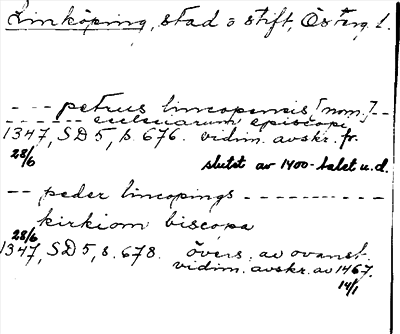 Linköping, stad o stift, Österg. l.
--- petrus lincopensis [nom.] --
------ ecclesiarum episcopi
1347, SD 5, s. 676. vidim. avskr. fr.
28/6 slutet av 1400-talet u.d.
-- peder lincopings ----------
kirkiom biscopa
28/6
1347, SD 5, s. 678. övers. av ovanst.
vidim. avskr. av 1467.
14/1